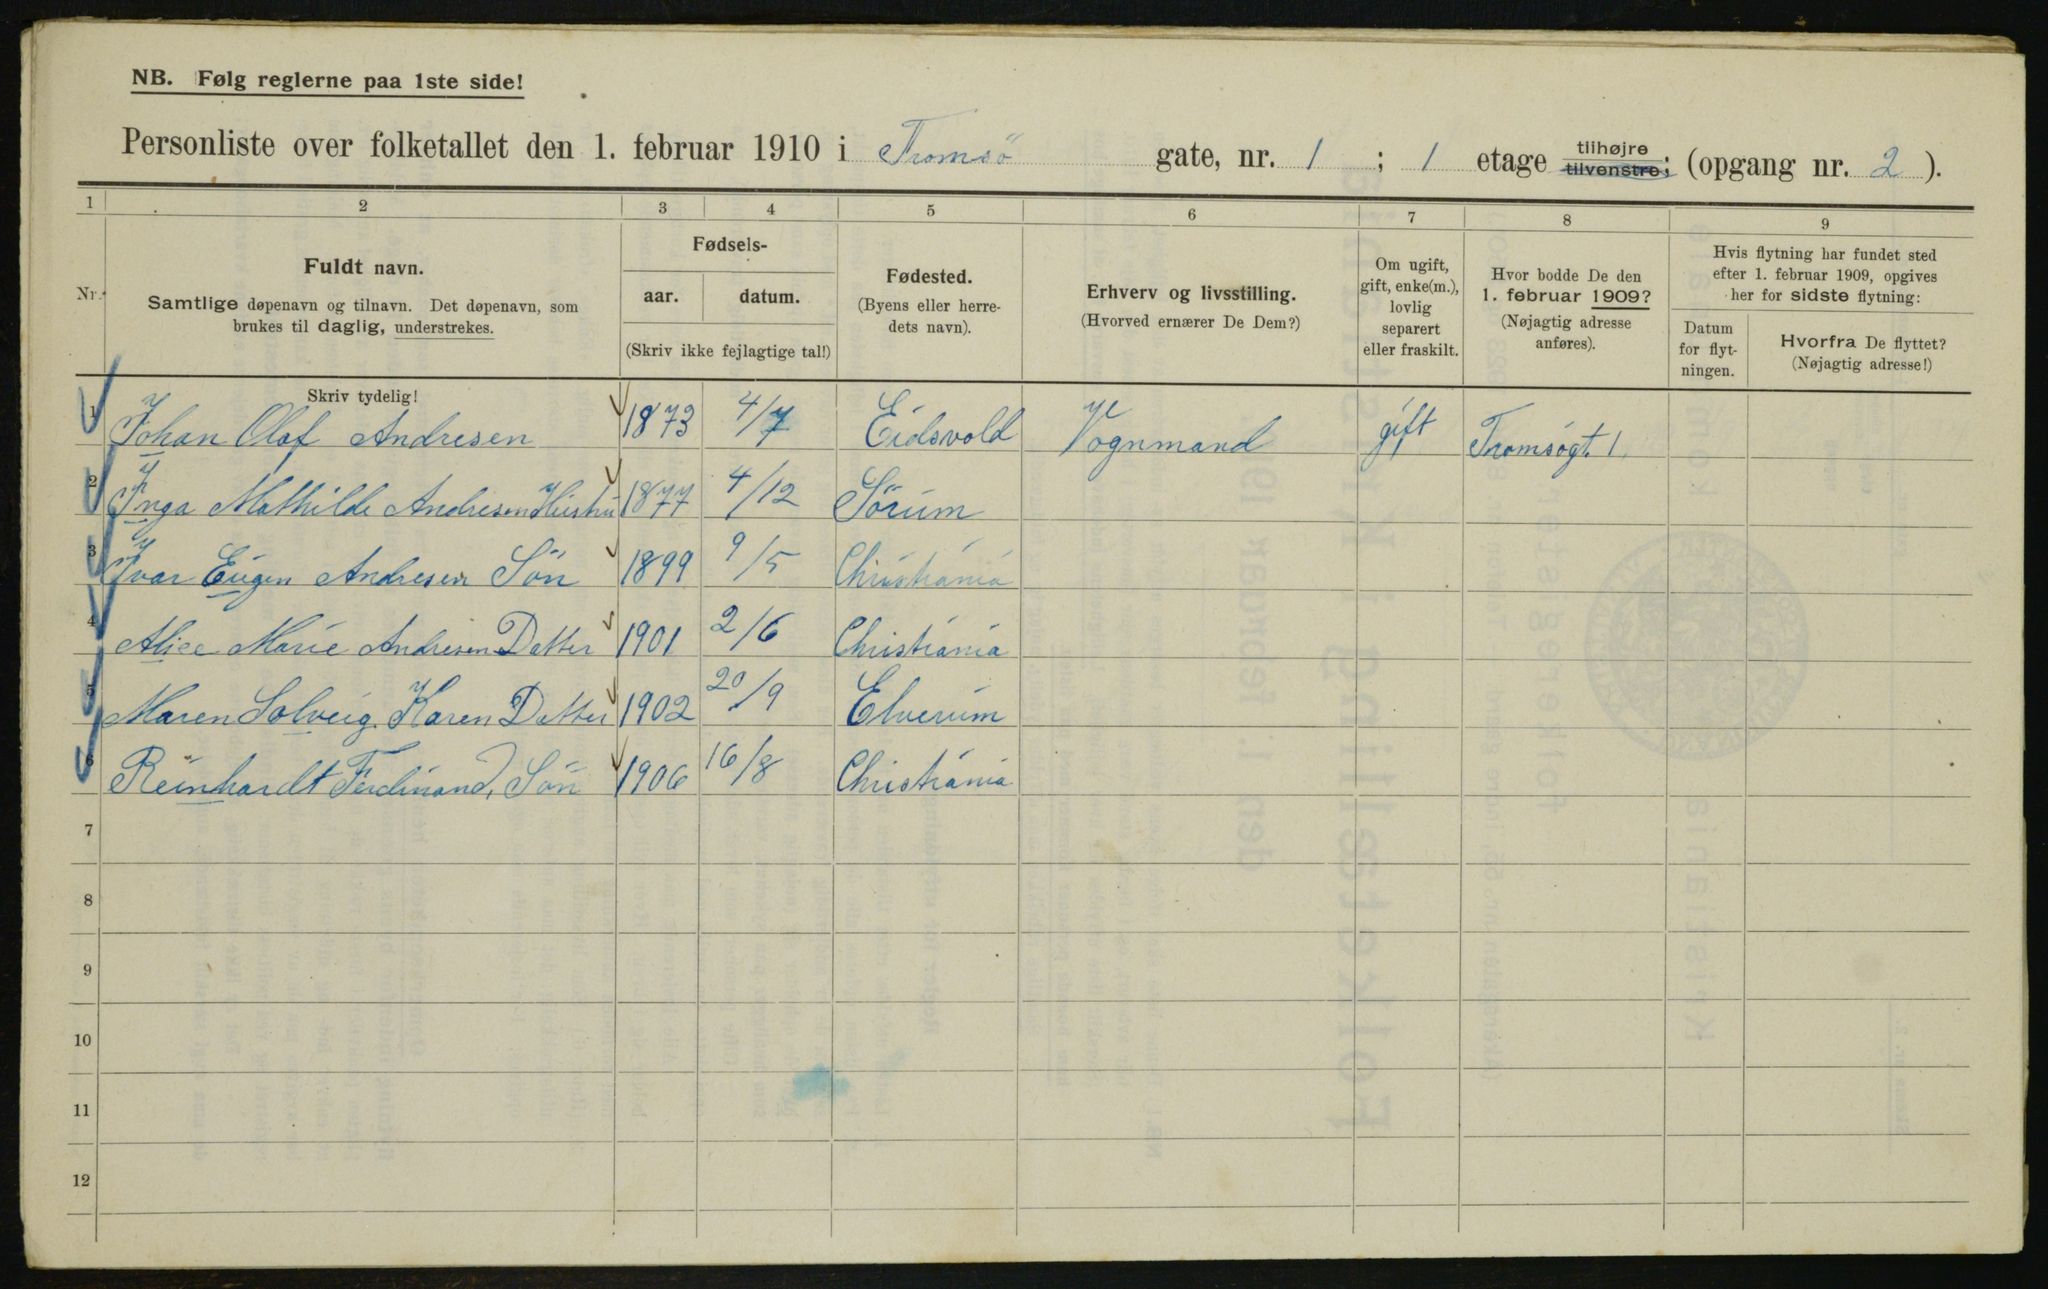 NB. Følg reglerne paa 1ste side!
Personliste over folketallet den 1. februar 1910 i Tromsö gate, nr. 1 ; 1 etage tilhøjre tilvenstre; (opgang nr. 2 ).
1 2 3 4 5 6 7 8 9
Nr.
Fuldt navn.
Samtlige døpenavn og tilnavn. Det døpenavn, som
brukes til daglig, understrekes.
Fødsels-
aar. datum.
(Skriv ikke fejlagtige tal!)
Fødested.
(Byens eller herre-
dets navn).
Erhverv og livsstilling.
(Hvorved ernærer De Dem?)
Om ugift,
gift, enke(m.),
lovlig
separert
eller fraskilt.
Hvor bodde De den
1. februar 1909?
(Nøjagtig adresse
anføres).
Hvis flytning har fundet sted
efter 1. februar 1909, opgives
her for sidste flytning:
Datum
for flyt-
ningen.
Hvorfra De flyttet?
(Nøjagtig adresse!)
Skriv tydelig!
1 Johan Olaf Andresen 1873 4/7 Eidsvold Vognmand gift Tromsøgt. 1.
2 Inga Mathilde Andresen Hustru 1877 4/12 Sörum
3 Ivar Eugen Andresen Sön 1899 9/5 Christiania
4 Alice Marie Andresen Datter 1901 2/6 Christiania
5 Maren Solveig Karen Datter 1902 20/9 Elverum
6 Reinhardt Ferdinand, Sön 1906 16/8 Christiania
7
8
9
10
11
12